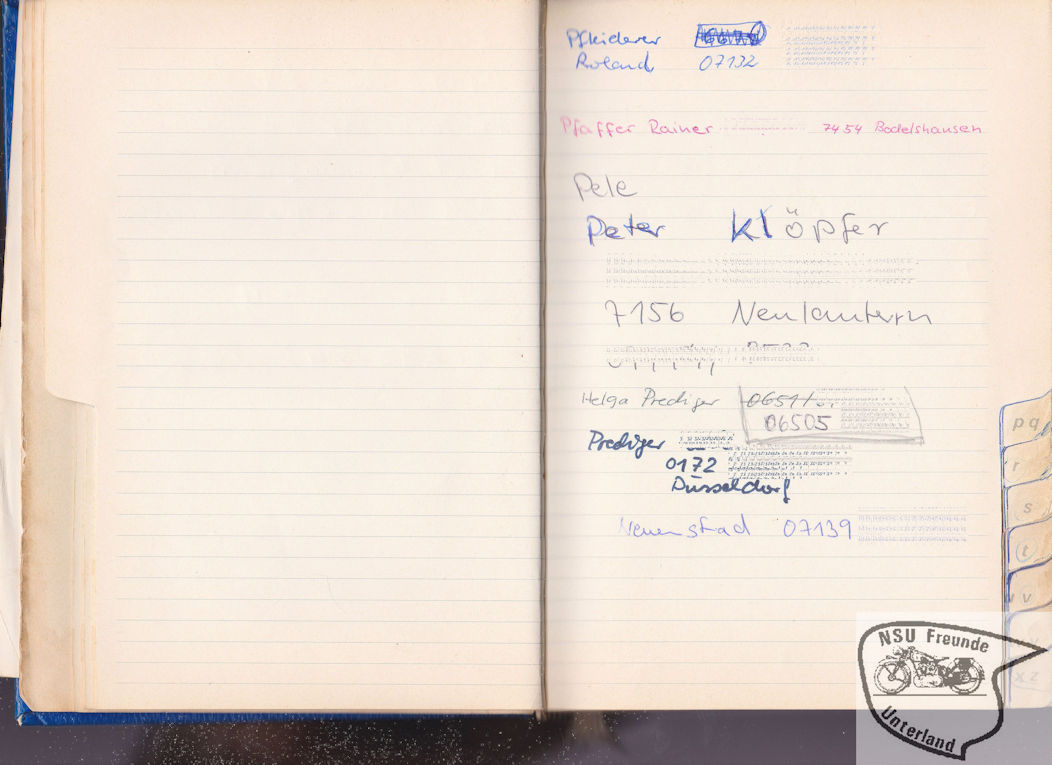 Pfleiderer
Roland 07132
Pfaffer Rainer 7454 Bodelshausen
Pele
Peter Klöpfer
7156 Neulautern
Helga Prediger 06511
06505
Prediger
0172
Düsseldorf
Neuenstad 07139
pq
r
s
t
v
xz
NSU Freunde
Unterland